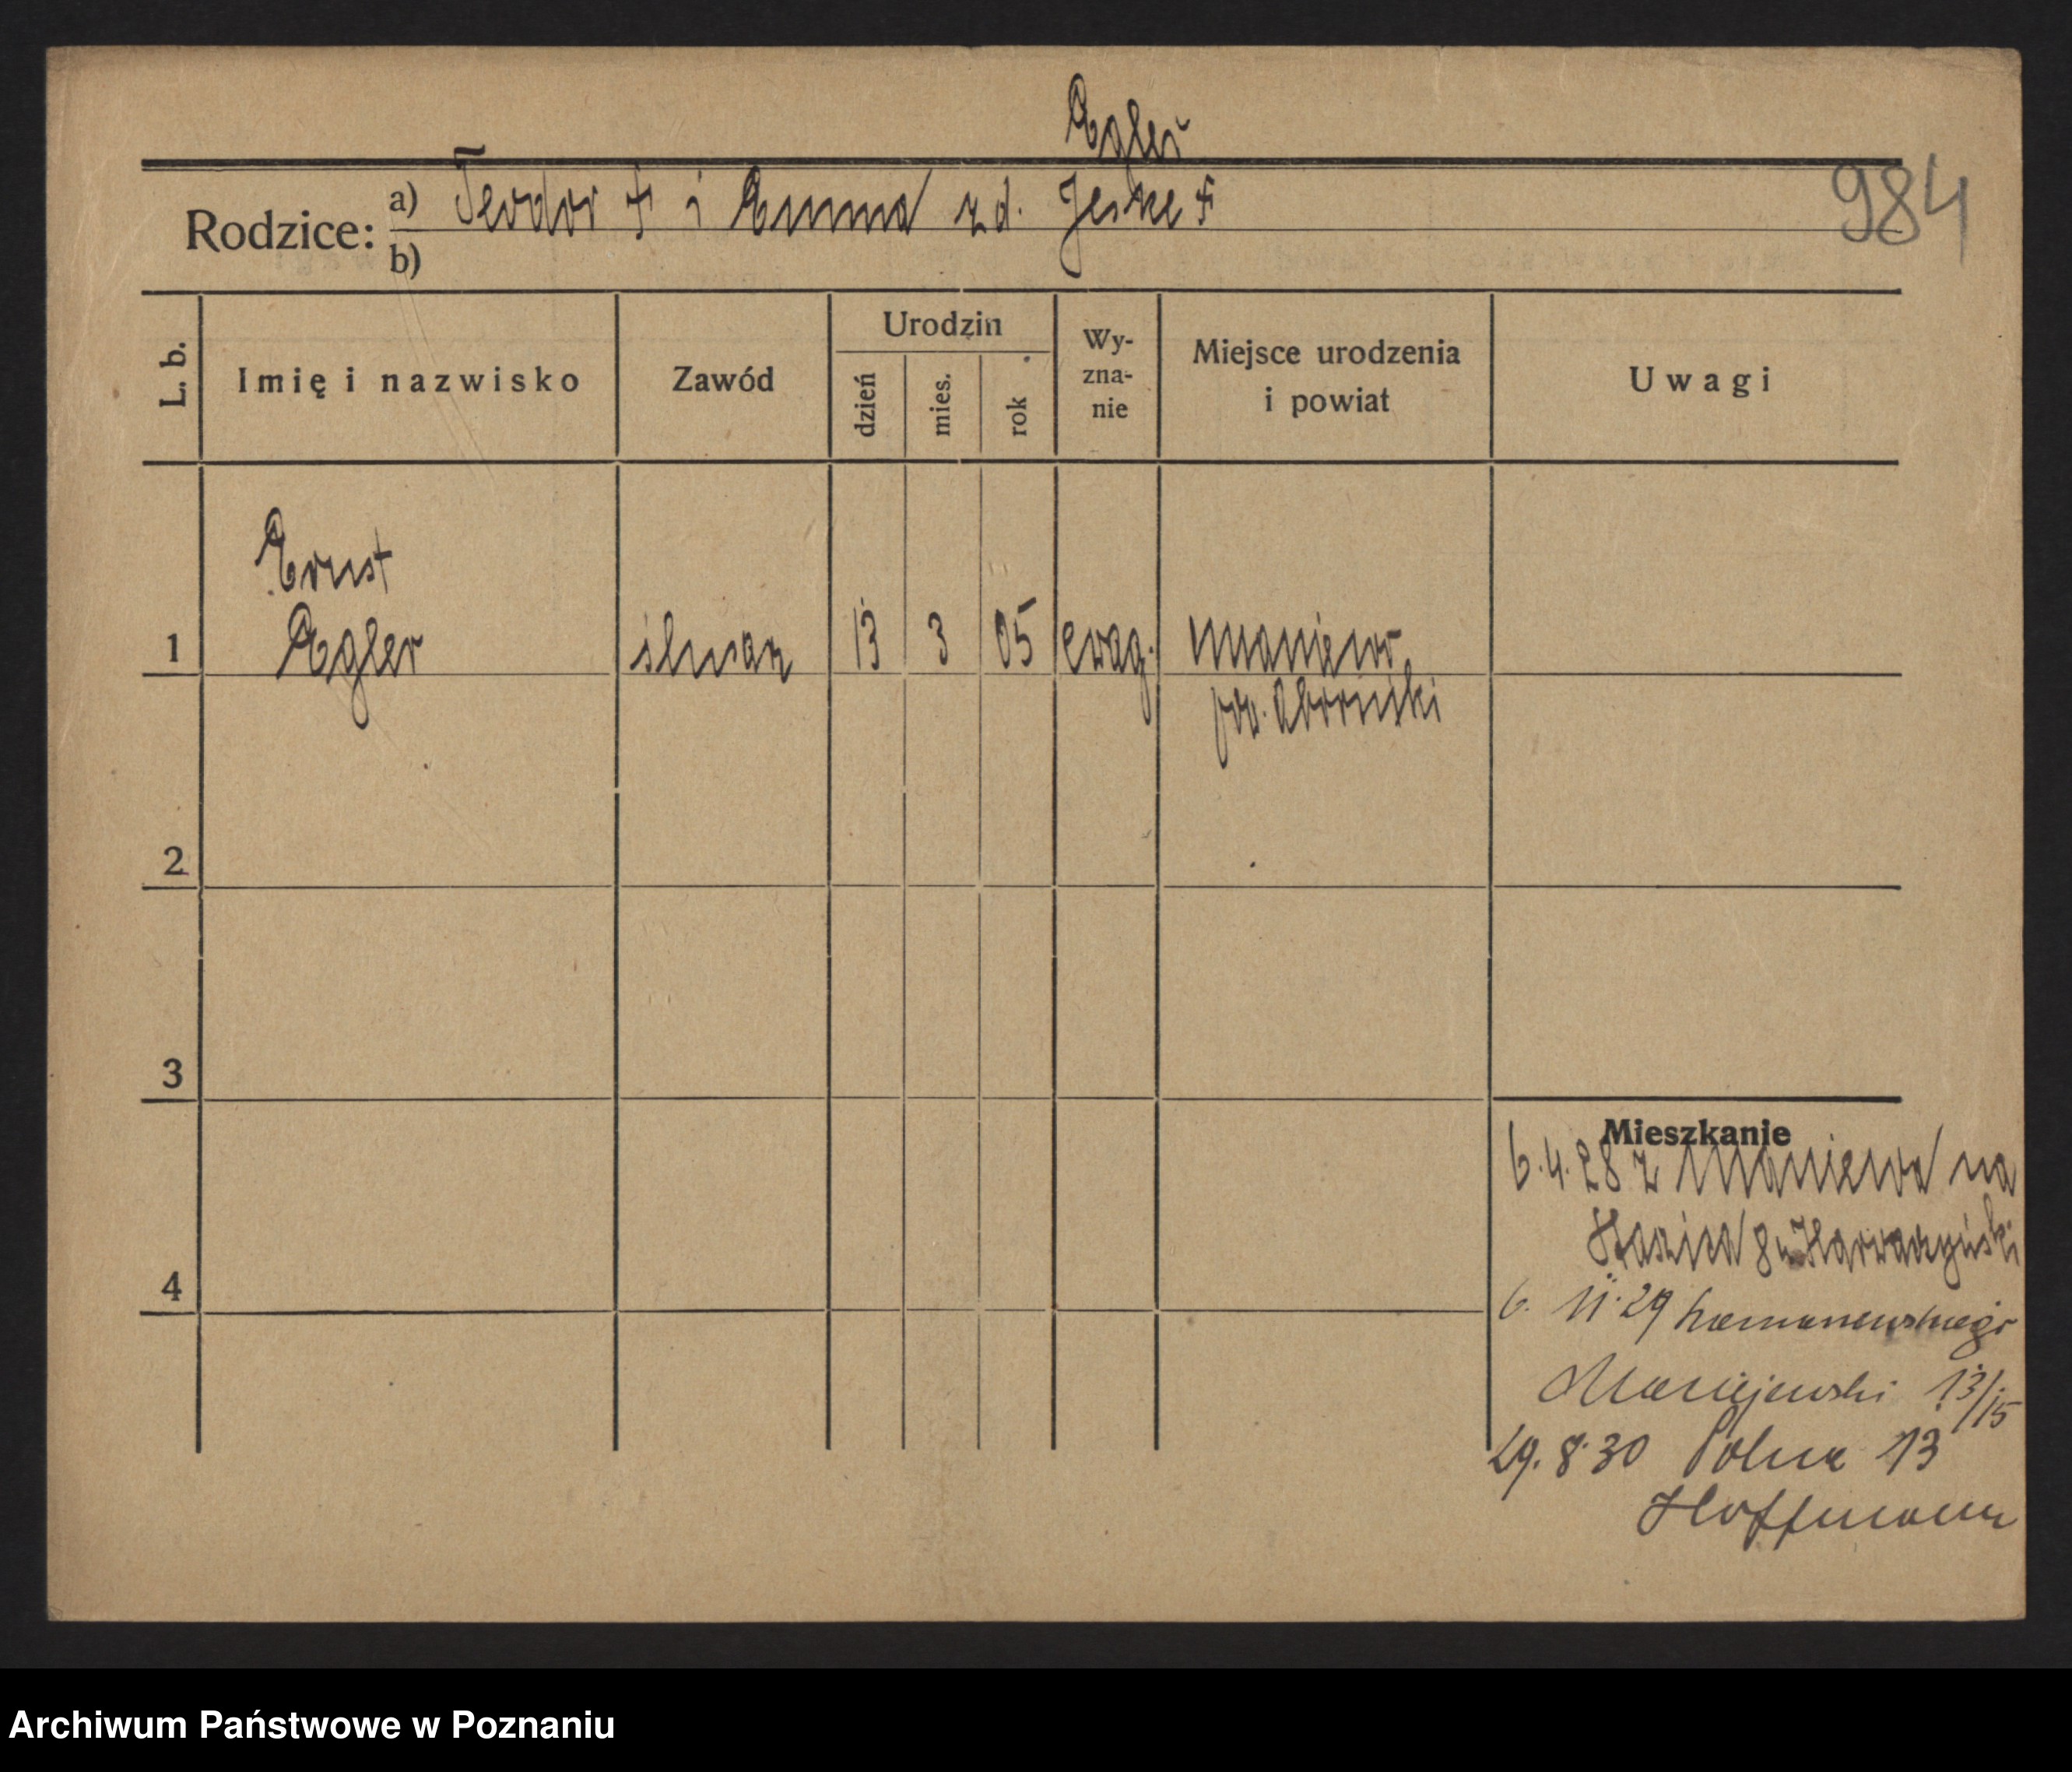 Egler
984
Rodzice: a) Teodor † i Emma z d. Jeske †
b)
L. b.
Imię i nazwisko
Zawód
Urodzin
dzień
mies.
rok
Wy-
zna-
nie
Miejsce urodzenia
i powiat
Uwagi
Ernst
1 Egler ślusarz 13 3 05 ewag. Maniewo
pow. Obornicki
2
3
4
Mieszkanie
6.4.28 z Maniewa na
Staszica 8
6. 11. 29
Maciejewski 13/15
29. 8. 30 Polna 13
Hoffmann
Archiwum Państwowe w Poznaniu